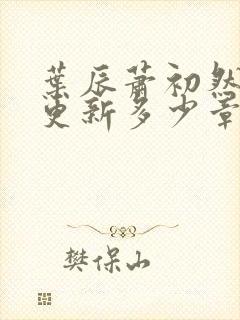 葉辰蕭初然
更新多少章
樊保山